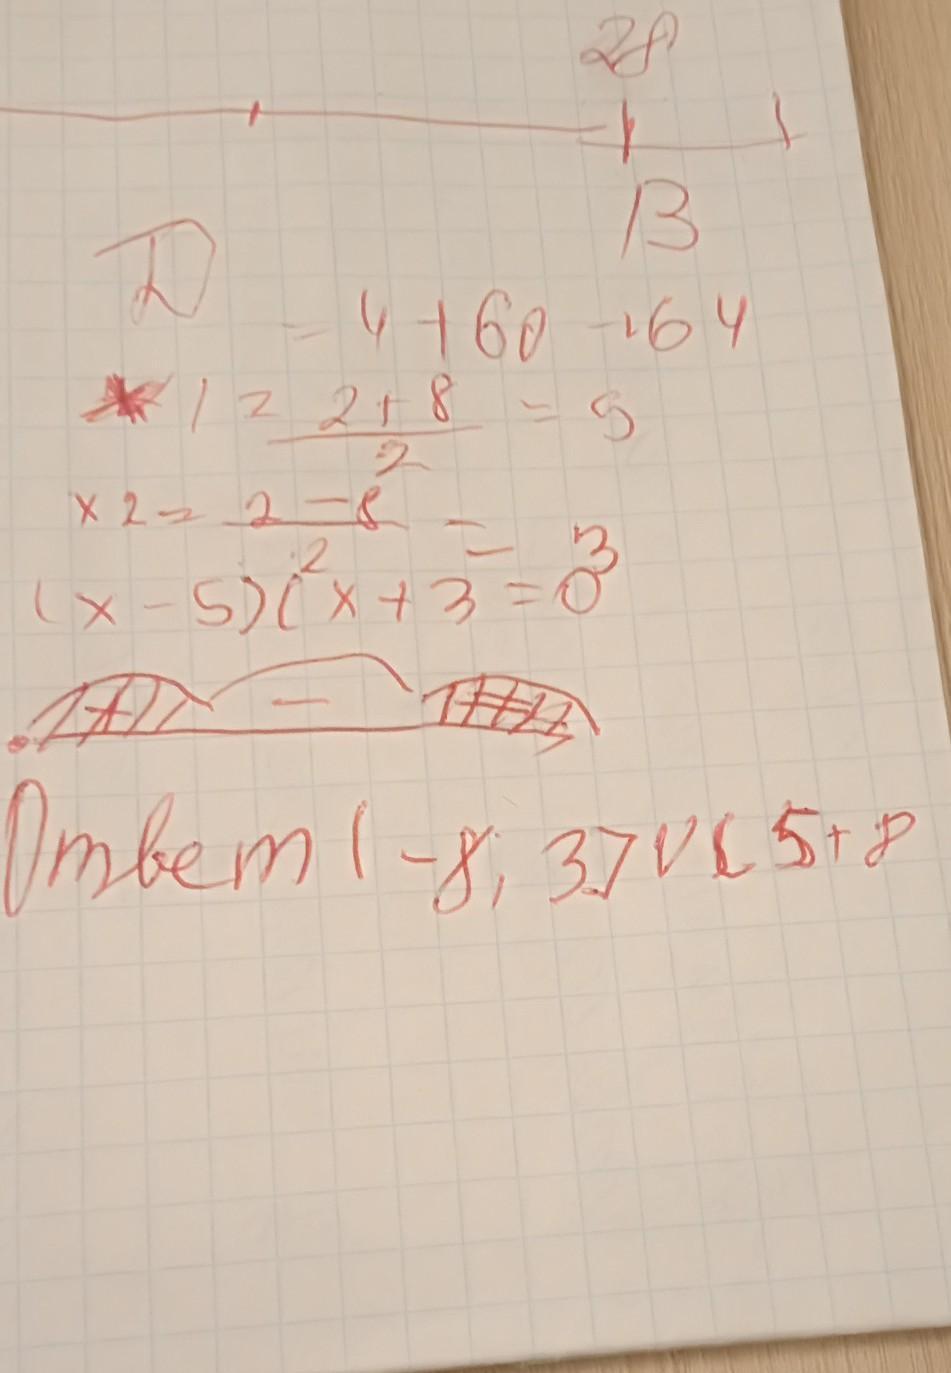 28
13
D
= 4 + 60 → 64
1 = 2 + 8 / 2 = 5
x2 = 2 - 8 / 2 = 3
(x - 5)(x + 3 = 0
+ −
Ответ (-8; 3] V [ 5 + 8